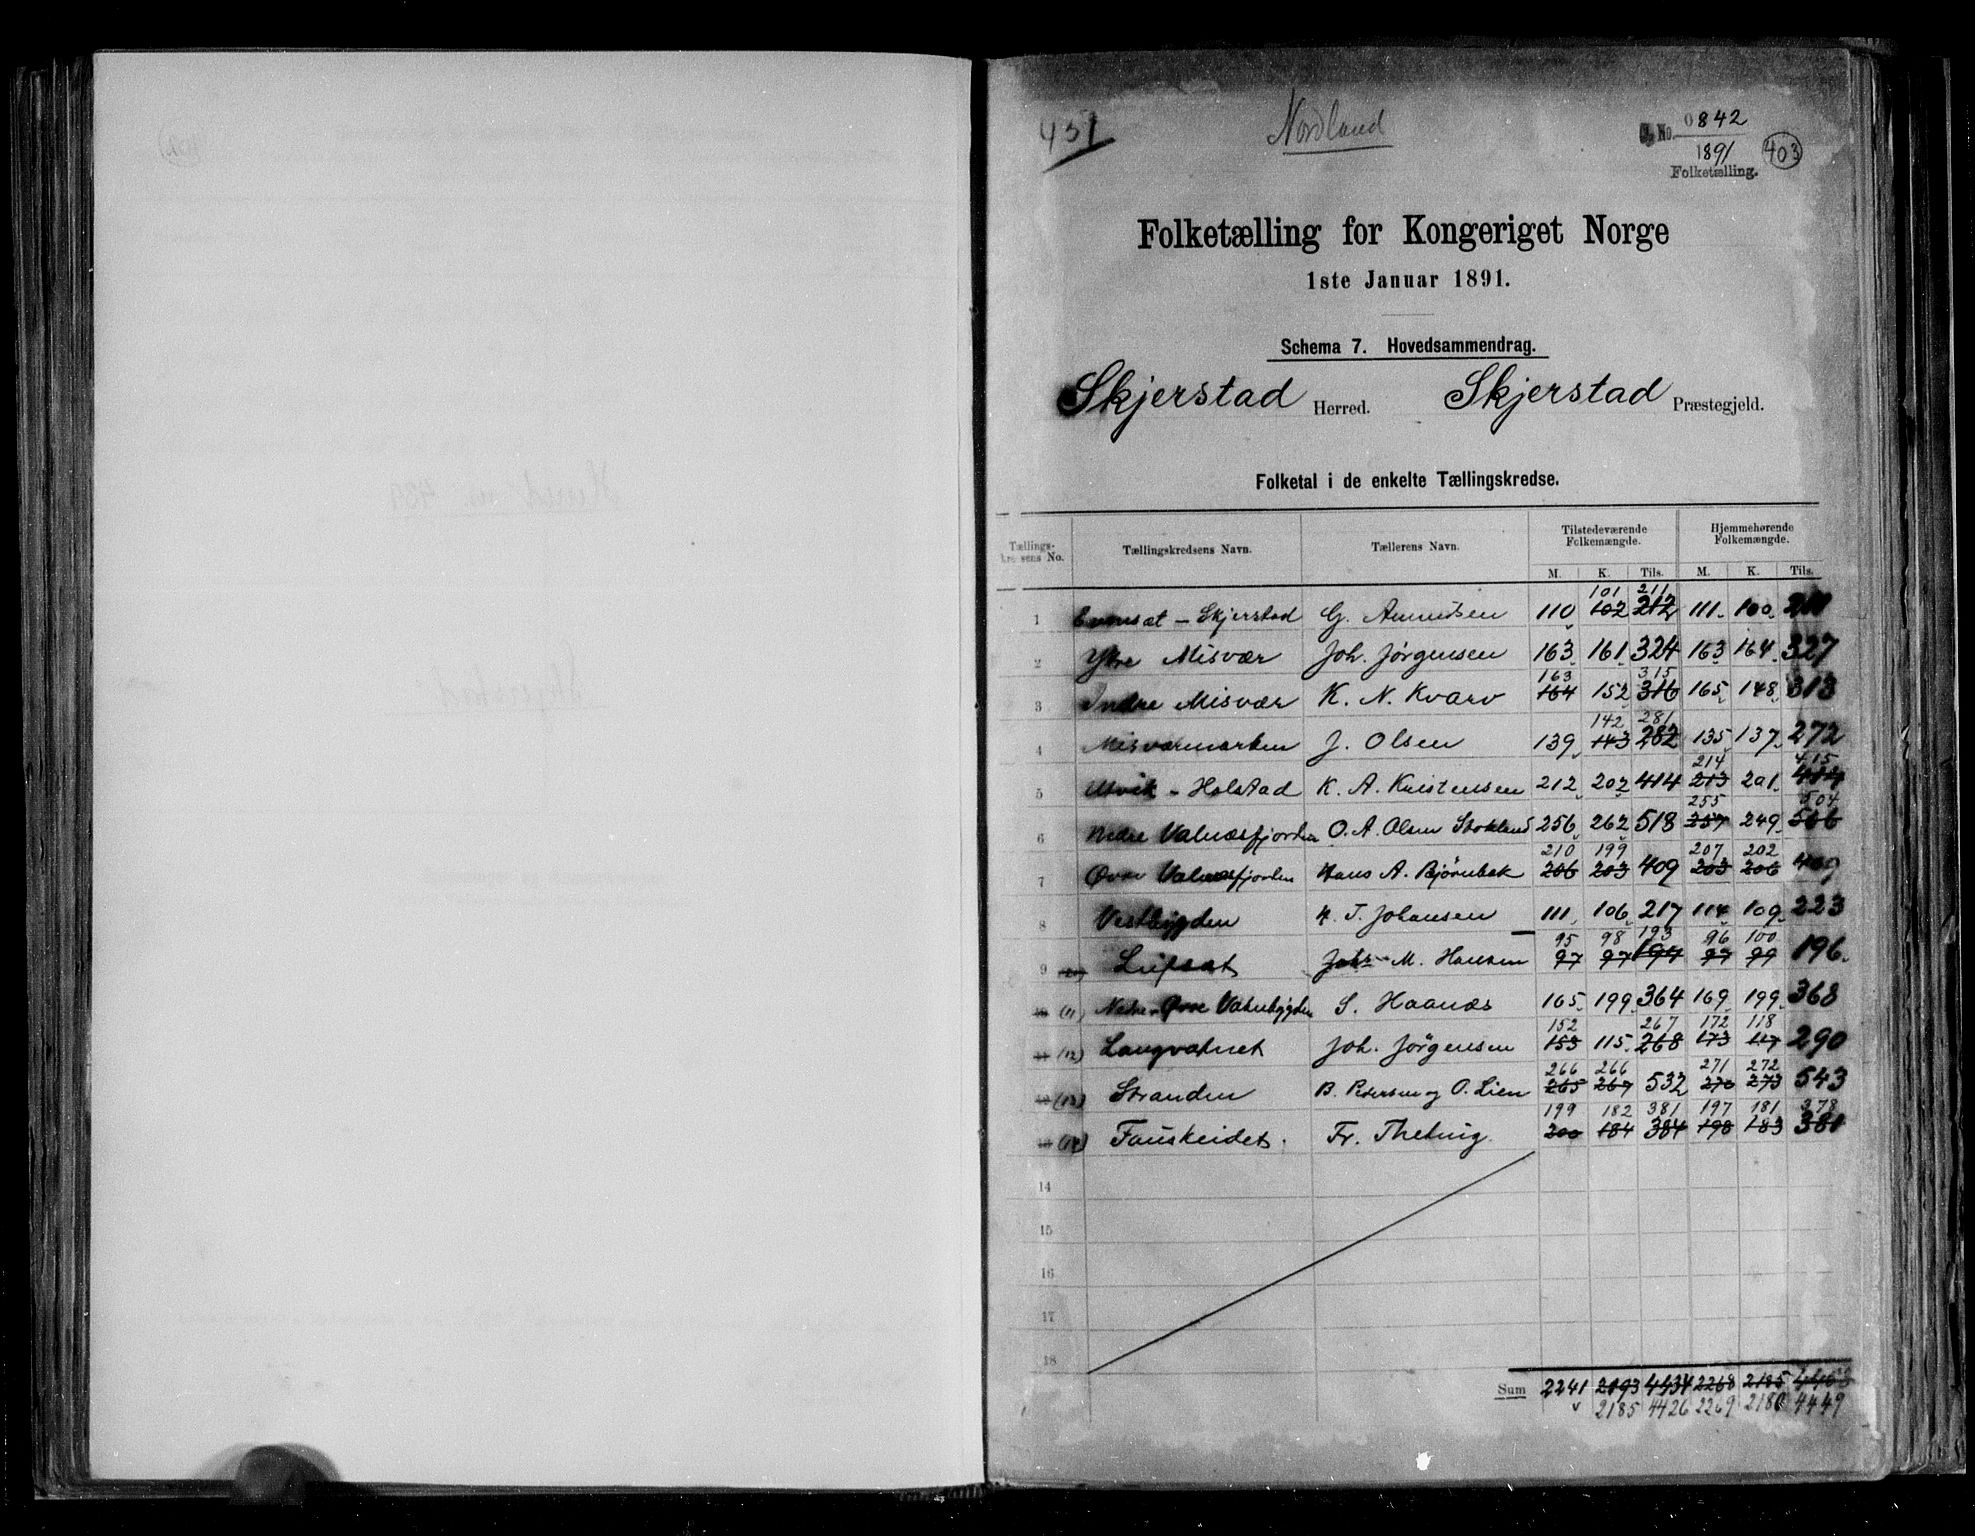 431
Nordland
No. 0842
1891
403
Folketælling.
Folketælling for Kongeriget Norge
1ste Januar 1891.
Schema 7. Hovedsammendrag.
Skjerstad Herred. Skjerstad Præstegjeld.
Folketal i de enkelte Tællingskredse.
Tællingskredsens No. Tællingskredsens Navn. Tællerens Navn. Tilstedeværende Folkemængde. Hjemmehørende Folkemængde.
M. K. Tils. M. K. Tils.
101 211
1 Evensæt - Skjerstad G. Amundsen 110 102 212 111 100 211
2 Ytre Misvær Joh. Jørgensen 163 161 324 163 164 327
163 315
3 Indre Misvær K. N. Kvarv 164 152 316 165 148 313
142 281
4 Misværmarken J. Olsen 139 143 282 135 137 272
214 415
5 Utvik - Holstad K. A. Kristensen 212 202 414 213 201 414
255 504
6 Nedre Valnæsfjorden O. A. Olsen Stokland 256 262 518 257 249 506
210 199 207 202
7 Øvre Valnæsfjorden Hans A. Bjørnbak 206 203 409 203 206 409
8 Vestbygden H. J. Johansen 111 106 217 114 109 223
95 98 193 96 100
9 Leifsæt Johs M. Hansen 97 97 194 97 99 196
(11) Nedre - Øvre Vatnbygden S. Haanæs 165 199 364 169 199 368
152 267 172 118
(12) Langvatnet Joh. Jørgensen 153 115 268 173 117 290
266 266 271 272
(13) Stranden B. Pedersen og O. Lien 265 267 532 270 273 543
199 182 381 197 181 378
(14) Fauskeidet Fr. Thetring 200 184 384 198 183 381
14
15
16
17
18
Sum 2241 2193 4434 2268 2185 4453
2185 4426 2269 2180 4449